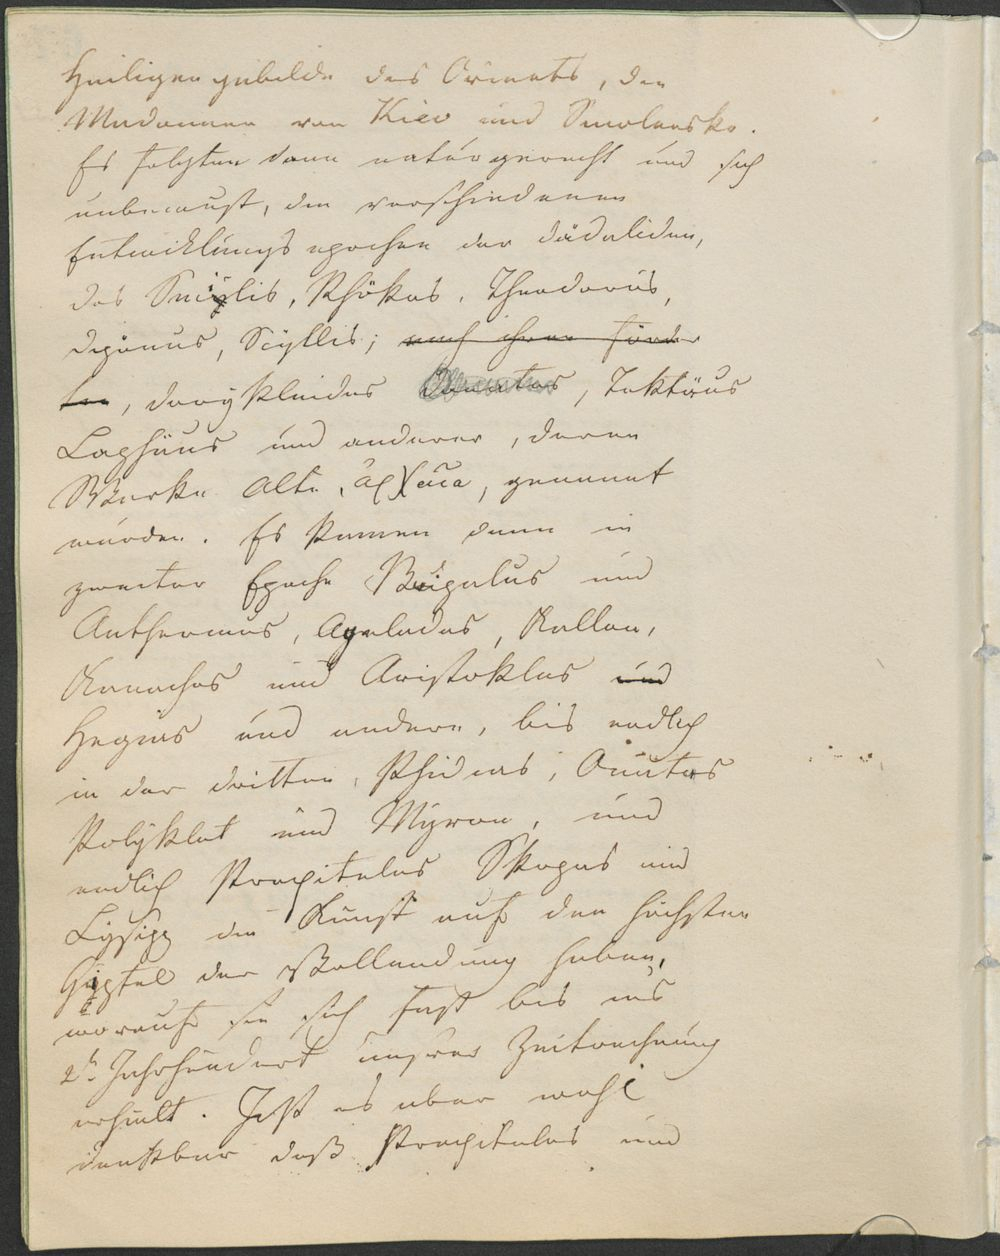 Heiligengebilde des Orients, den
Madonnen von Kiev und Smolensko.
Es folgten dann naturgerecht und sich
unbewußt, den verschiedenen
Entwicklungsepochen der Dädaliden,
des Smÿlis, Rhökos, Theodorus,
Dipönus, Scÿllis; nach ihnen
, Dorÿkleidas Donatas, Tektäus
Laphäus und anderer, deren
Werke Alte, ἀρχαῖα, genannt
wurden. Es kamen dann in
zweiter Epoche Bupalus und
Anthermus, Ageladas, Kallon,
Kanachos und Aristoklas und
Hegias und andere, bis endlich
in der dritten, Phidias,
Polÿklet und Mÿron, und
endlich Praxiteles Skopas und
Lÿsipp die Kunst auf den höchsten
Gipfel der Vollendung heben,
worauf sie sich fast bis ins
2t Jahrhundert unsrer Zeitrechnung
erhielt. Ist es aber wohl
denkbar daß Praxiteles und